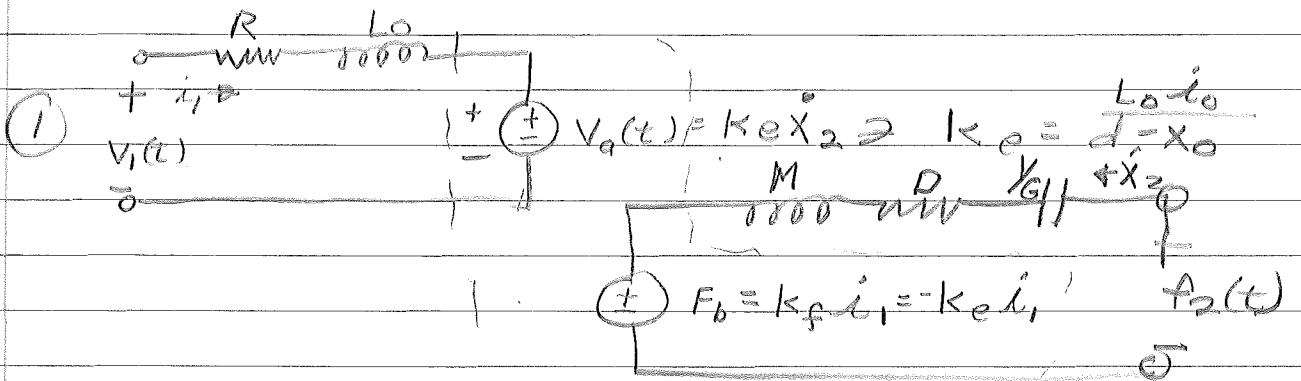 R L0
① + i₁ →
V₁(t)
-
+ ± Vₐ(t) = ke ẋ₂ ⇒ ke = L₀ i₀ / d - x₀
-
M D 1/G ← ẋ₂
+
± F_b = k_f i₁ = -ke i₁ f₂(t)
-